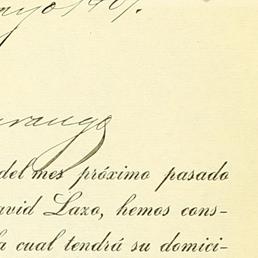 1907.
urango
del mes próximo pasado
avid Lazo, hemos cons-
a cual tendrá su domici-